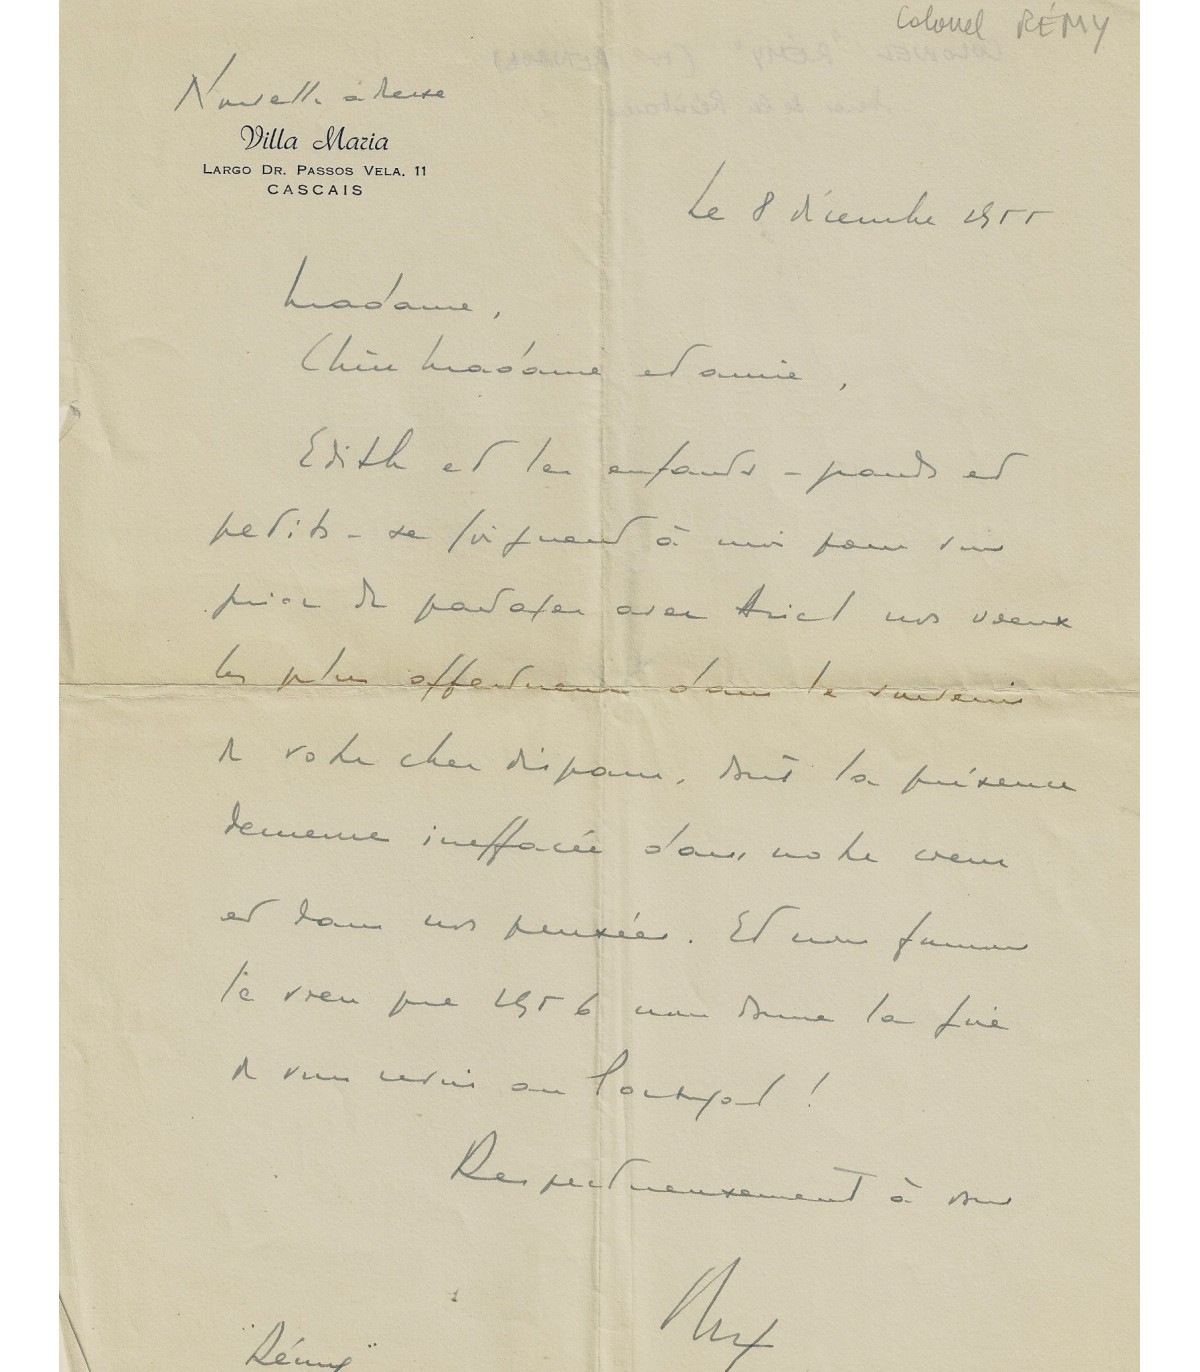 Colonel RÉMY
Nouvelle adresse
Villa Maria
LARGO DR. PASSOS VELA, 11
CASCAIS
Le 8 décembre 1955
Madame,
Chère Madame et amie,
Edith et les enfants - grands et
petits - se joignent à moi pour vous
prier de partager avec Ariel nos vœux
les plus affectueux dans le souvenir
de votre cher disparu, dont la présence
demeure ineffacée dans notre cœur
et dans nos pensées. Et nous formons
le vœu que 1956 nous donne la joie
de vous revoir au Portugal !
Respectueusement à vous
Rémy
"Rémy"